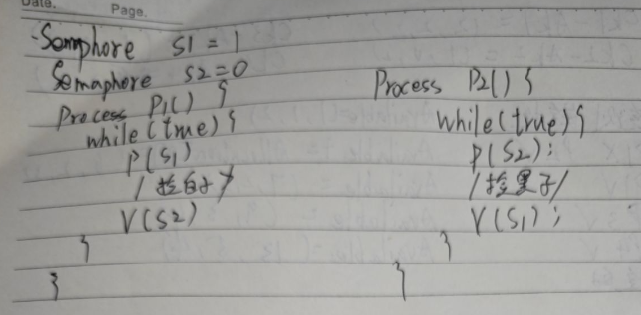 Date. Page.
Semphore S1 = 1
Semaphore S2 = 0
Process P1() {
while(true) {
P(S1)
/捡白子/
V(S2)
}
}
Process P2() {
while(true) {
P(S2);
/捡黑子/
V(S1);
}
}